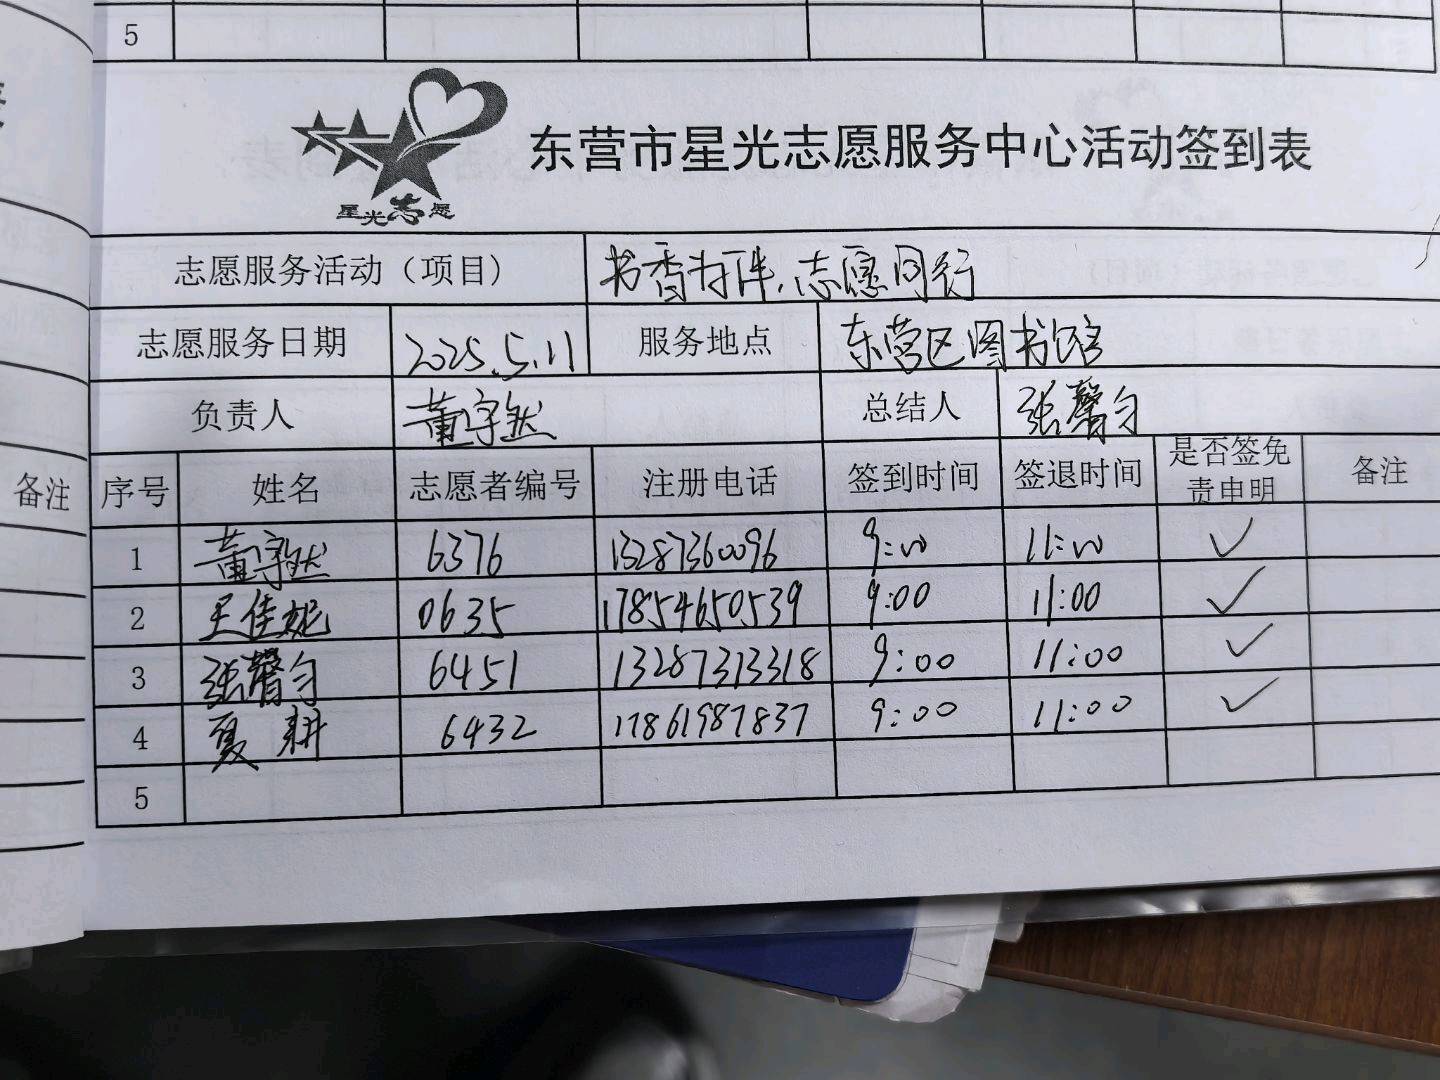 5
星光志愿
东营市星光志愿服务中心活动签到表
志愿服务活动（项目） 书香为伴，志愿同行
志愿服务日期 2025.5.11 服务地点 东营区图书馆
负责人 董宇然 总结人 张馨匀
备注 序号 姓名 志愿者编号 注册电话 签到时间 签退时间 是否签免责申明 备注
1 董宇然 6376 13287360096 9:00 11:00 ✓
2 王佳妮 0635 17854650539 9:00 11:00 ✓
3 张馨匀 6451 13287313318 9:00 11:00 ✓
4 夏耕 6432 17861987837 9:00 11:00 ✓
5